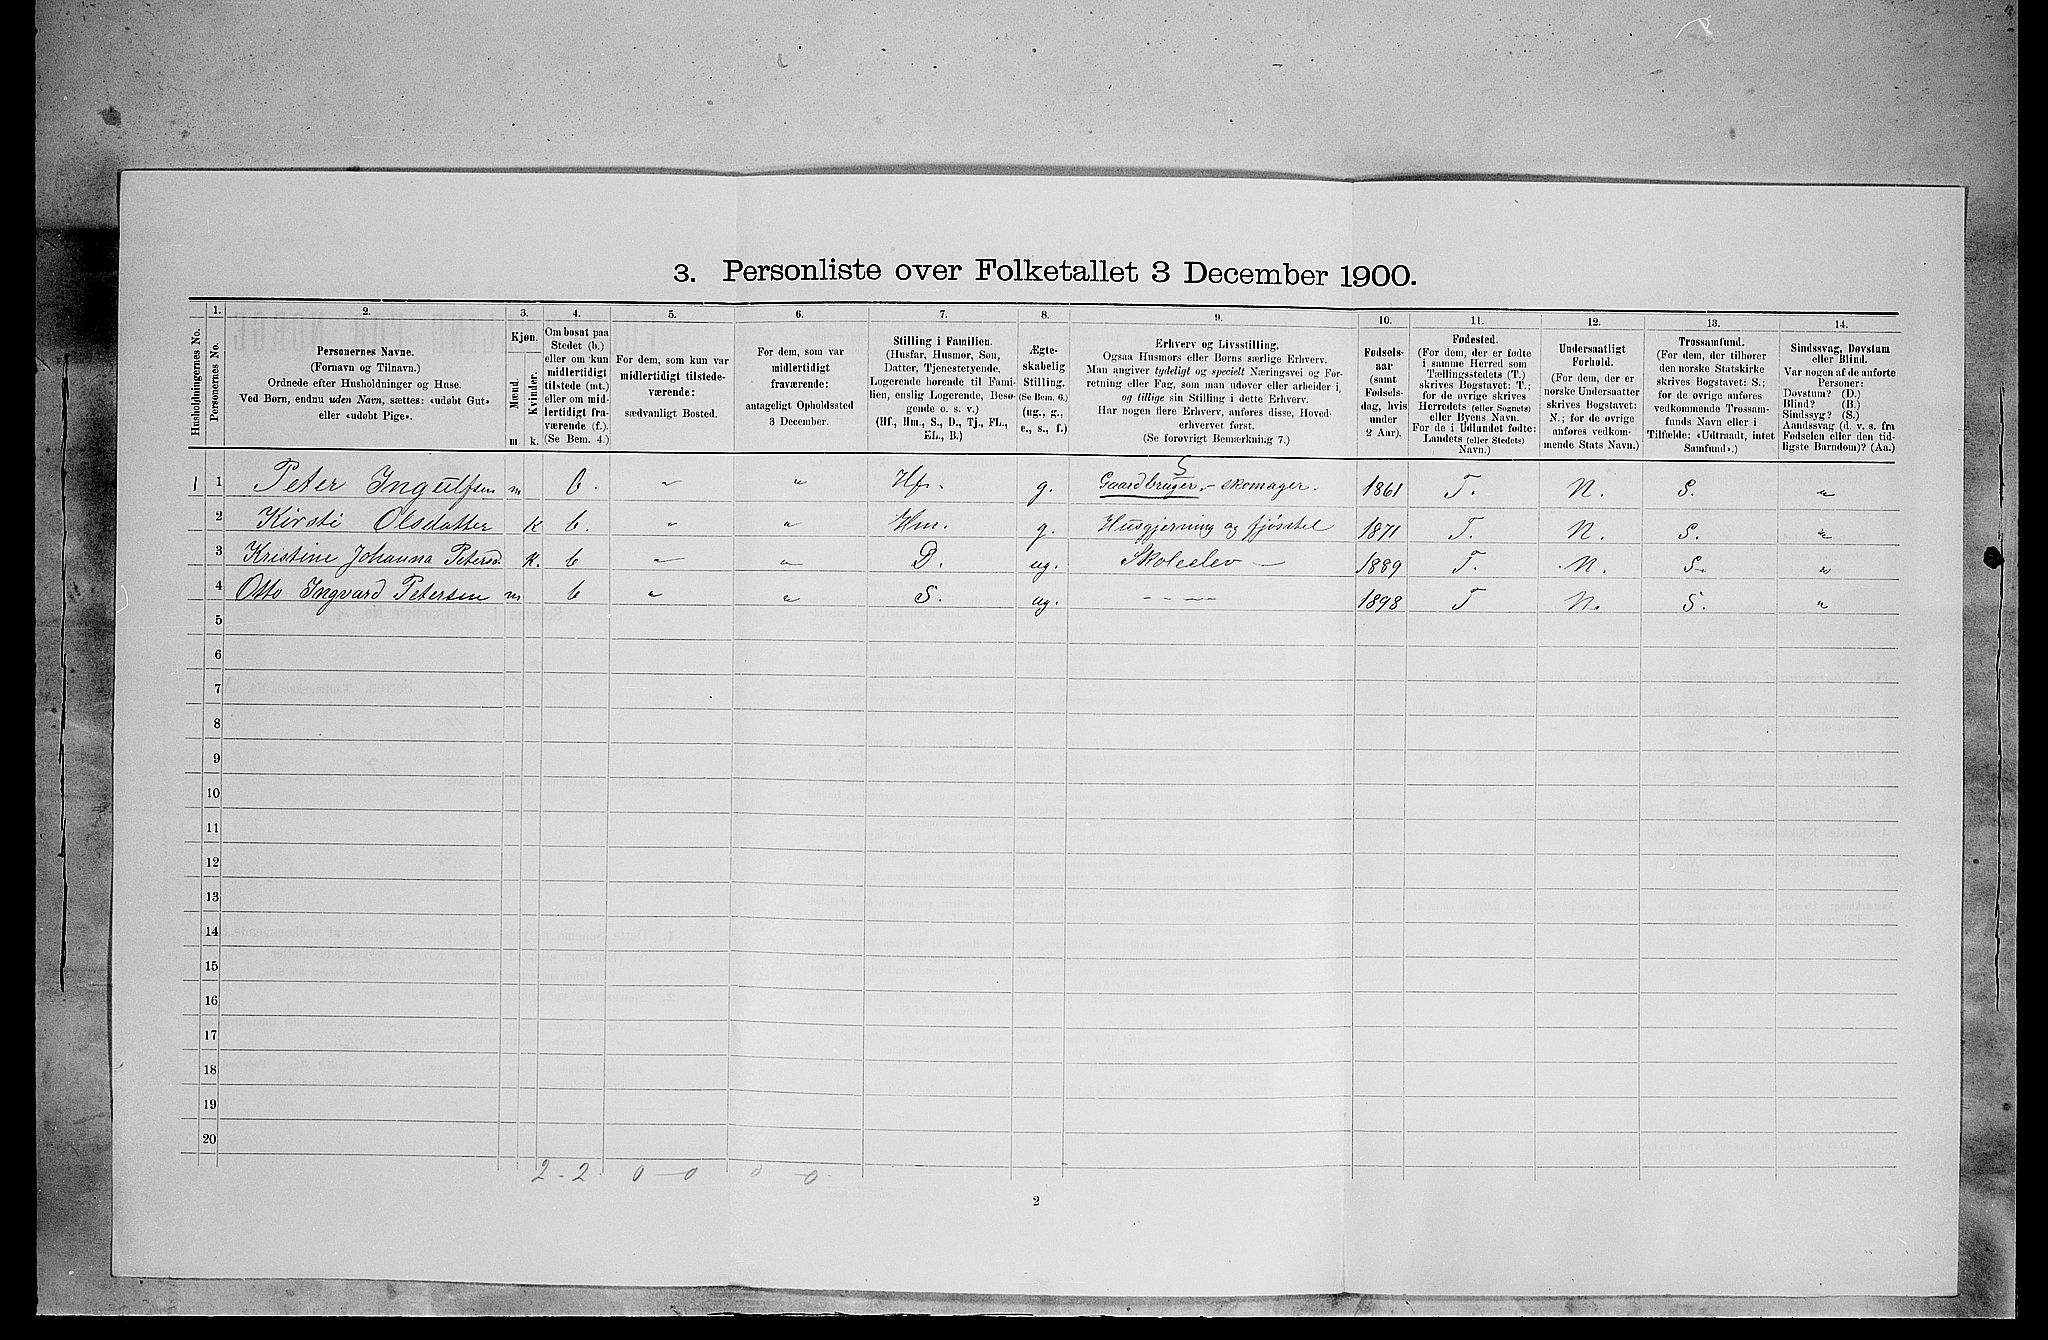 3. Personliste over Folketallet 3 December 1900.
Husholdningernes No.
1.
Personernes No.
2.
Personernes Navne.
(Fornavn og Tilnavn.)
Ordnede efter Husholdninger og Huse.
Ved Børn, endnu uden Navn, sættes: «udøbt Gut»
eller «udøbt Pige».
3.
Kjøn.
Mænd.
Kvinder.
m k.
4.
Om bosat paa
Stedet (b.)
eller om kun
midlertidigt
tilstede (mt.)
eller om mid-
lertidigt fra-
værende (f.).
(Se Bem. 4.)
5.
For dem, som kun var
midlertidigt tilstede-
værende:
sædvanligt Bosted.
6.
For dem, som var
midlertidigt
fraværende:
antageligt Opholdssted
3 December.
7.
Stilling i Familien.
(Husfar, Husmor, Søn,
Datter, Tjenestetyende,
Logerende hørende til Fami-
lien, enslig Logerende, Besø-
gende o. s. v.)
(Hf., Hm., S., D., Tj., FL.,
EL., B.)
8.
Ægte-
skabelig
Stilling.
(Se Bem. 6.)
(ug., g.,
e., s., f.)
9.
Erhverv og Livsstilling.
Ogsaa Husmors eller Børns særlige Erhverv.
Man angiver tydeligt og specielt Næringsvei og For-
retning eller Fag, som man udøver eller arbeider i,
og tillige sin Stilling i dette Erhverv.
Har nogen flere Erhverv, anføres disse, Hoved-
erhvervet først.
(Se forøvrigt Bemærkning 7.)
10.
Fødsels-
aar
(samt
Fødsels-
dag, hvis
under
2 Aar).
11.
Fødested.
(For dem, der er fødte
i samme Herred som
Tællingsstedets (T.)
skrives Bogstavet: T.;
for de øvrige skrives
Herredets (eller Sognets)
eller Byens Navn.
For de i Udlandet fødte:
Landets (eller Stedets)
Navn.)
12.
Undersaatligt
Forhold.
(For dem, der er
norske Undersaatter
skrives Bogstavet:
N.; for de øvrige
anføres vedkom-
mende Stats Navn.)
13.
Trossamfund.
(For dem, der tilhører
den norske Statskirke
skrives Bogstavet: S.;
for de øvrige anføres
vedkommende Trossam-
funds Navn eller i
Tilfælde: «Udtraadt, intet
Samfund».)
14.
Sindssvag, Døvstum
eller Blind.
Var nogen af de anførte
Personer:
Døvstum? (D.)
Blind? (B.)
Sindssyg? (S.)
Aandssvag (d. v. s. fra
Fødselen eller den tid-
ligste Barndom)? (Aa.)
1 1 Peter Ingulfsen m b. " " Hf. g. Gaardbruger. - skomager. 1861 T. N. S. "
S
2 Kirsti Olsdatter k b. " " Hm. g. Husgjerning og fjøsstel 1871 T. N. S. "
3 Kristine Johanna Petersd. k. b " " D. ug. Skoleelev — 1889 T. N. S. "
4 Otto Ingvard Petersen m b " " S. ug. - - - - 1898 T N. S. "
5
6
7
8
9
10
11
12
13
14
15
16
17
18
19
20
2 - 2 0 - 0 0 - 0
2